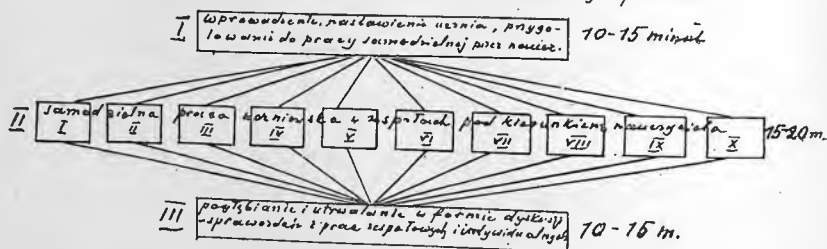 I wprowadzenie, nastawienie ucznia, przygo-
towanie do pracy samodzielnej przez naucz. 10-15 minut
II samodzielna praca uczniowska w zespołach pod kierunkiem nauczyciela 15-20 m.
I II III IV V VI VII VIII IX X
III pogłębianie i utrwalanie w formie dyskusji
sprawozdań z prac zespołowych i indywidualnych 10-15 m.